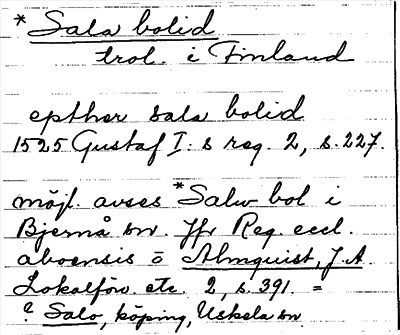 * Sala bolid
trol. i Finland
epther sala bolid
1525 Gustaf I:s reg. 2, s. 227.
möjl. avses *Salu bol i
Bjernå sn. Jfr Reg. eccl.
aboensis o Almquist, J.A.
Lokalförv. etc. 2, s. 391. =
? Salo, köping, Uskela sn